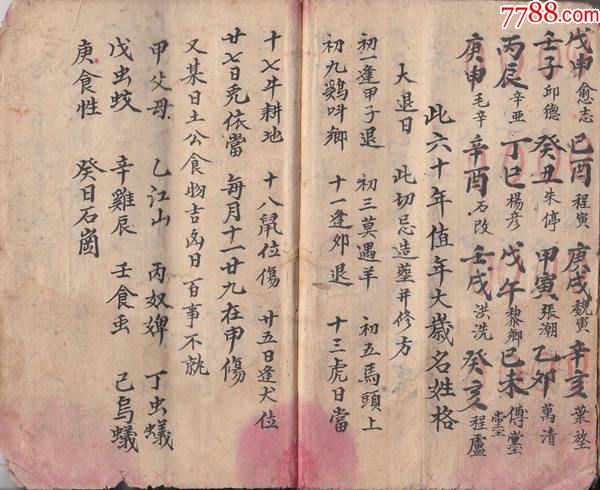 7788.com
戊申 愈志 己酉 程寅 庚戌 魏寅 辛亥 葉
壬子 邱德 癸丑 朱停 甲寅 張潮 乙卯 萬清
丙辰 辛亜 丁巳 楊彦 戊午 黎卿 己未 傅
庚申 毛辛 辛酉 石改 壬戌 洪洗 癸亥 程盧
此六十年值年大歲名姓格
大退日 此切忌造塟并修方
初一逢甲子退 初三莫遇羊 初五馬頭上
初九鷄叫鄉 十一逢卯退 十三虎日當
十七牛耕地 十八鼠位傷 廿五日逢犬位
廿七日兎依當 每月十一廿九在申傷
又某日土公食物吉凶日 百事不就
甲父母 乙江山 丙奴婢 丁虫蟻
戊虫蛟 辛雞辰 壬食虫 己烏蟻
庚食性 癸日石崗